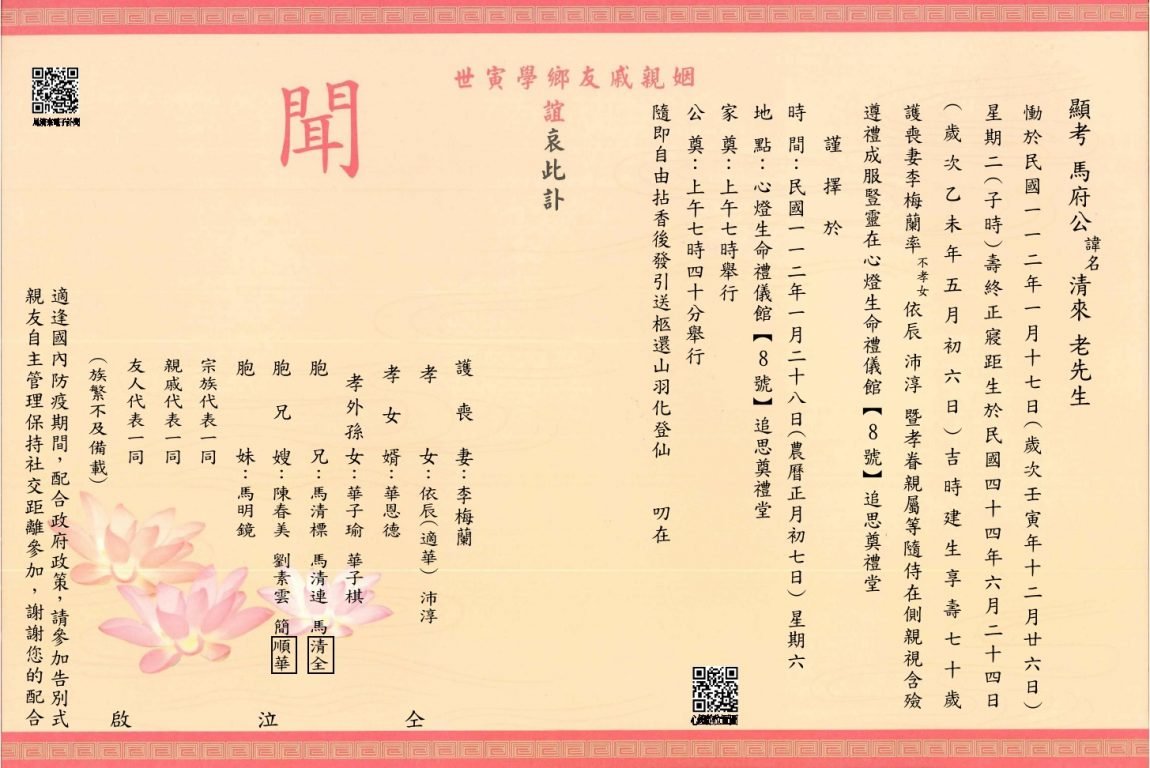 顯考 馬府公諱名清來 老先生
慟於民國一一二年一月十七日(歲次壬寅年十二月廿六日)
星期二(子時)壽終正寢距生於民國四十四年六月二十四日
(歲次乙未年五月初六日)吉時建生享壽七十歲
護喪妻李梅蘭率不孝女依辰 沛淳 暨孝眷親屬等隨侍在側親視含殮
遵禮成服豎靈在心燈生命禮儀館【8號】追思奠禮堂
謹擇於
時間:民國一一二年一月二十八日(農曆正月初七日)星期六
地點:心燈生命禮儀館【8號】追思奠禮堂
家奠:上午七時舉行
公奠:上午七時四十分舉行
隨即自由拈香後發引送柩還山羽化登仙 叨在
姻親戚友鄉學寅世
誼哀此訃
聞
護喪妻:李梅蘭
孝女:依辰(適華) 沛淳
孝女婿:華恩德
孝外孫女:華子瑜 華子棋
胞兄:馬清標 馬清連 馬清全
胞兄嫂:陳春美 劉素雲 簡順華
胞妹:馬明鏡
宗族代表一同
親戚代表一同
友人代表一同
(族繁不及備載)
仝泣啟
適逢國內防疫期間,配合政府政策,請參加告別式
親友自主管理保持社交距離參加,謝謝您的配合
馬清來電子訃聞